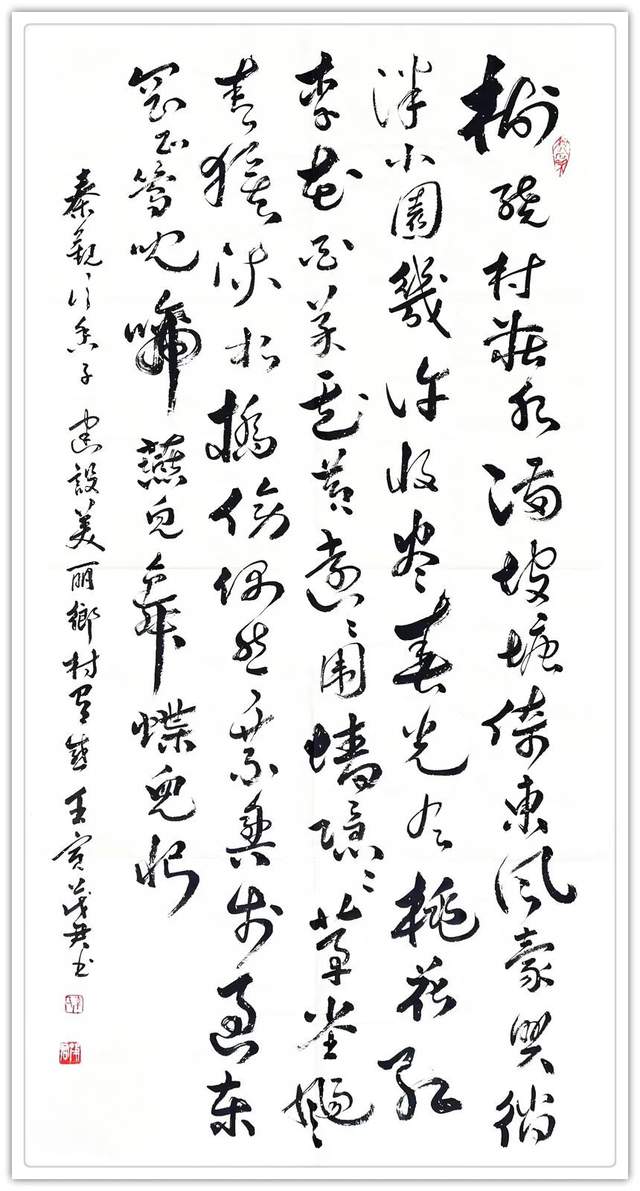 樹繞村莊水滿坡塘倚東風豪興徜
徉小園幾許收盡春光有桃花紅
李花白菜花黃遠〻圍墻隱〻草堂颺
青旗流水橋傍偶然乘興步過東
岡正鶯兒啼燕兒舞蝶兒忙
秦觀行香子 建設美丽鄉村有感 壬寅茂君书